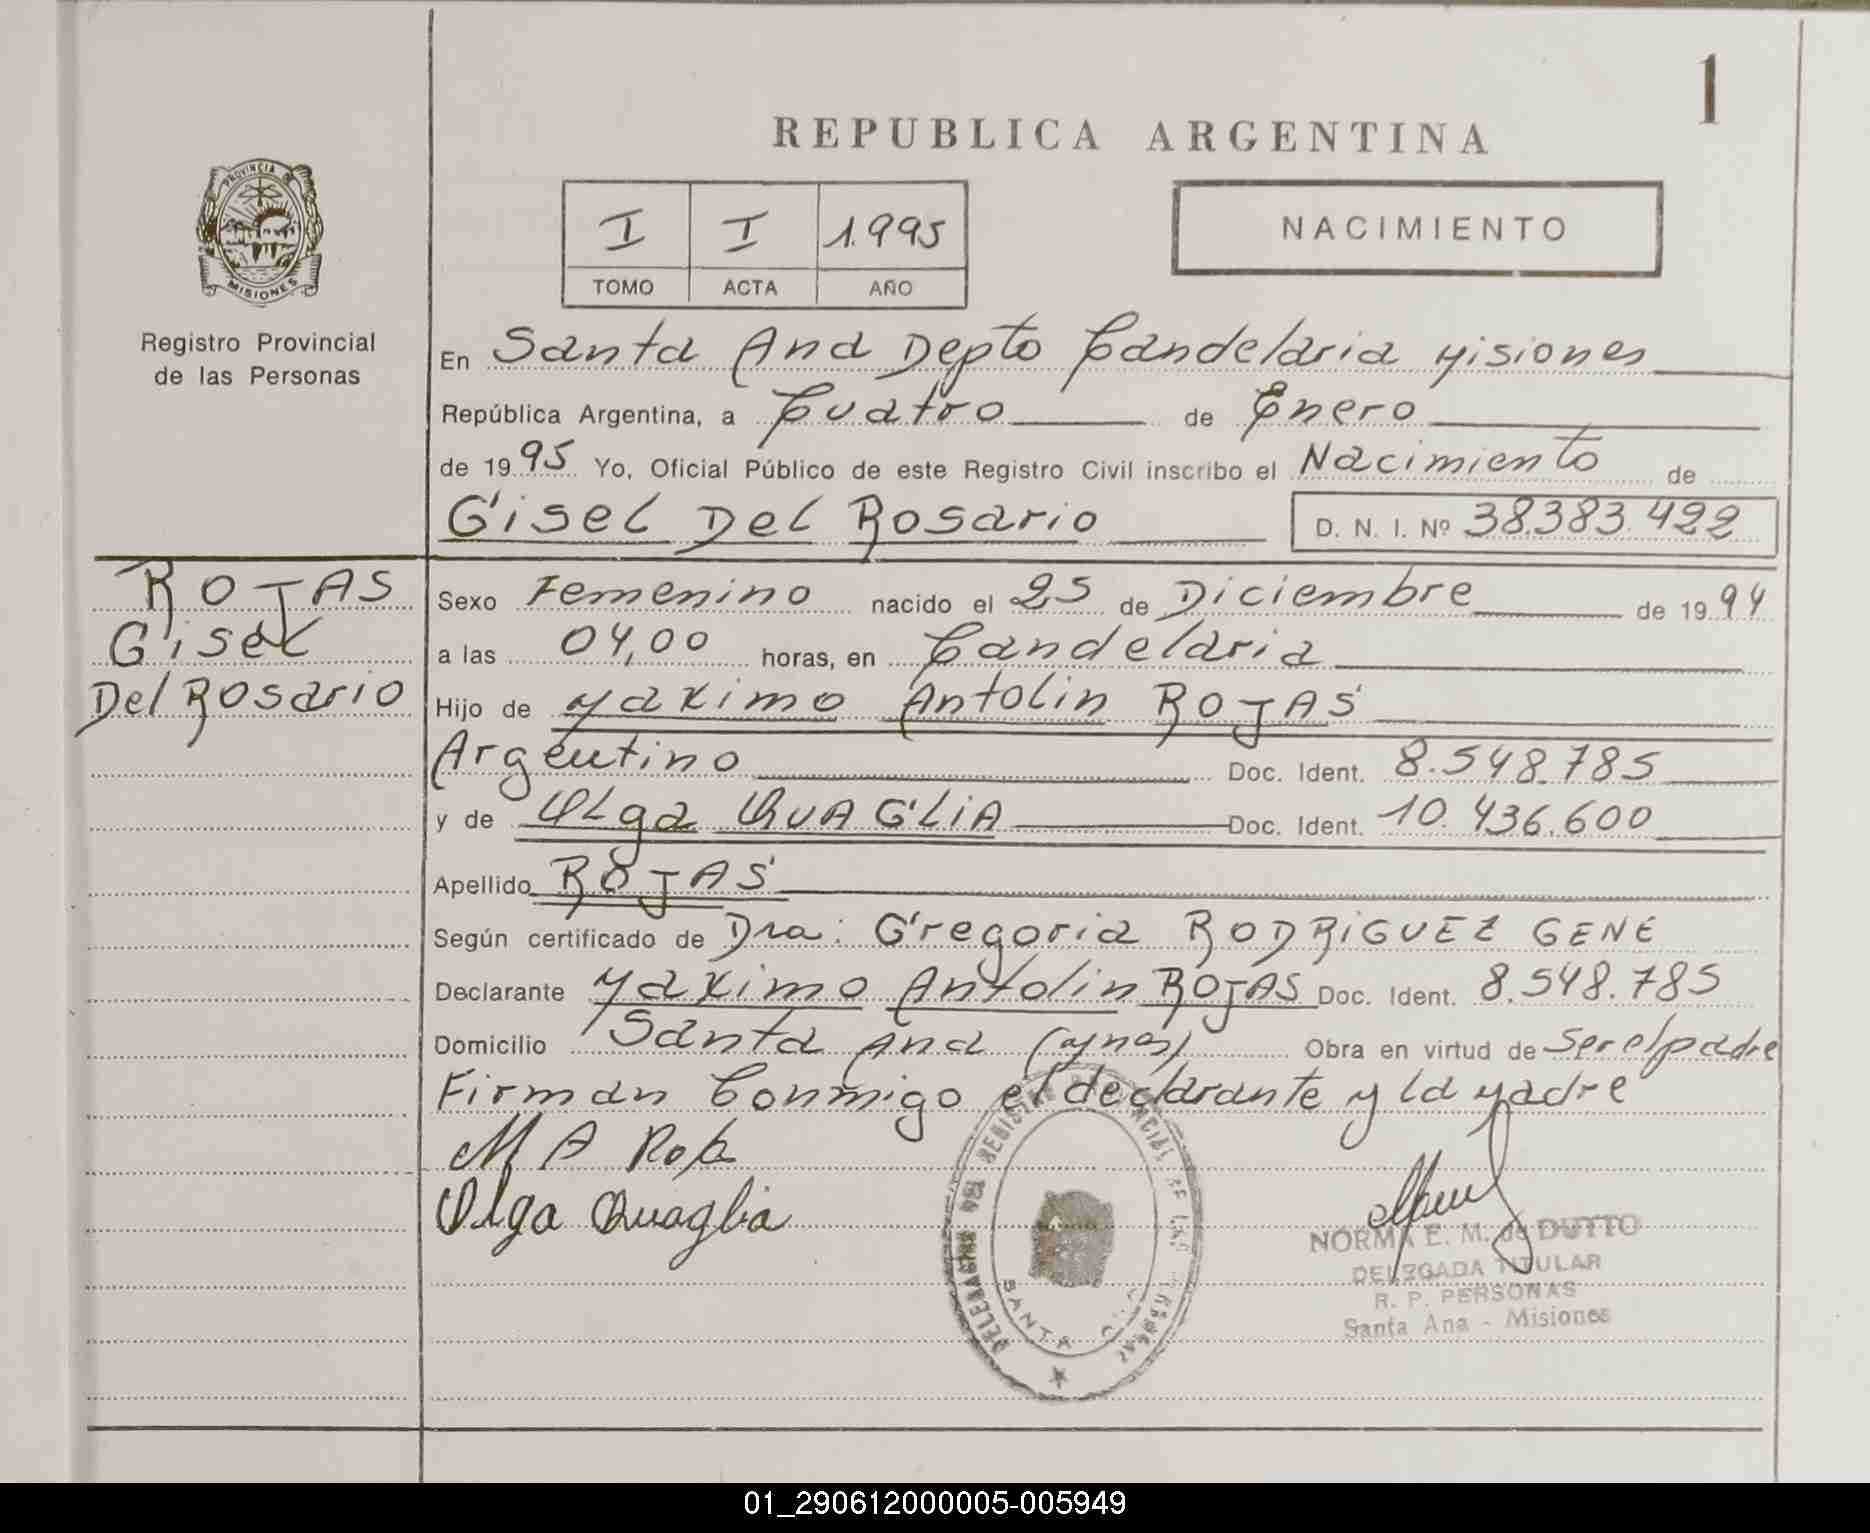 1
REPUBLICA ARGENTINA
PROVINCIA DE
MISIONES
Registro Provincial
de las Personas
I I 1.995
TOMO ACTA AÑO
NACIMIENTO
En Santa Ana Depto Candelaria Misiones
República Argentina, a Cuatro de Enero
de 1995 Yo, Oficial Público de este Registro Civil inscribo el Nacimiento de
Gisel Del Rosario D. N. I. Nº 38.383.422
ROJAS
Gisel
Del Rosario
Sexo Femenino nacido el 25 de Diciembre de 1994
a las 04,00 horas, en Candelaria
Hijo de Maximo Antolin ROJAS
Argentino Doc. Ident. 8.548.785
y de Olga QUAGLIA Doc. Ident. 10.436.600
Apellido ROJAS
Según certificado de Dra: Gregoria RODRIGUEZ GENE
Declarante Maximo Antolin ROJAS Doc. Ident. 8.548.785
Domicilio Santa Ana (Mnes) Obra en virtud de Ser el padre
Firman Conmigo el declarante y la Madre
M A Roja
Olga Quaglia
SANTA
NORMA E. M. de DUTTO
DELEGADA TITULAR
R. P. PERSONAS
Santa Ana - Misiones
01_290612000005-005949